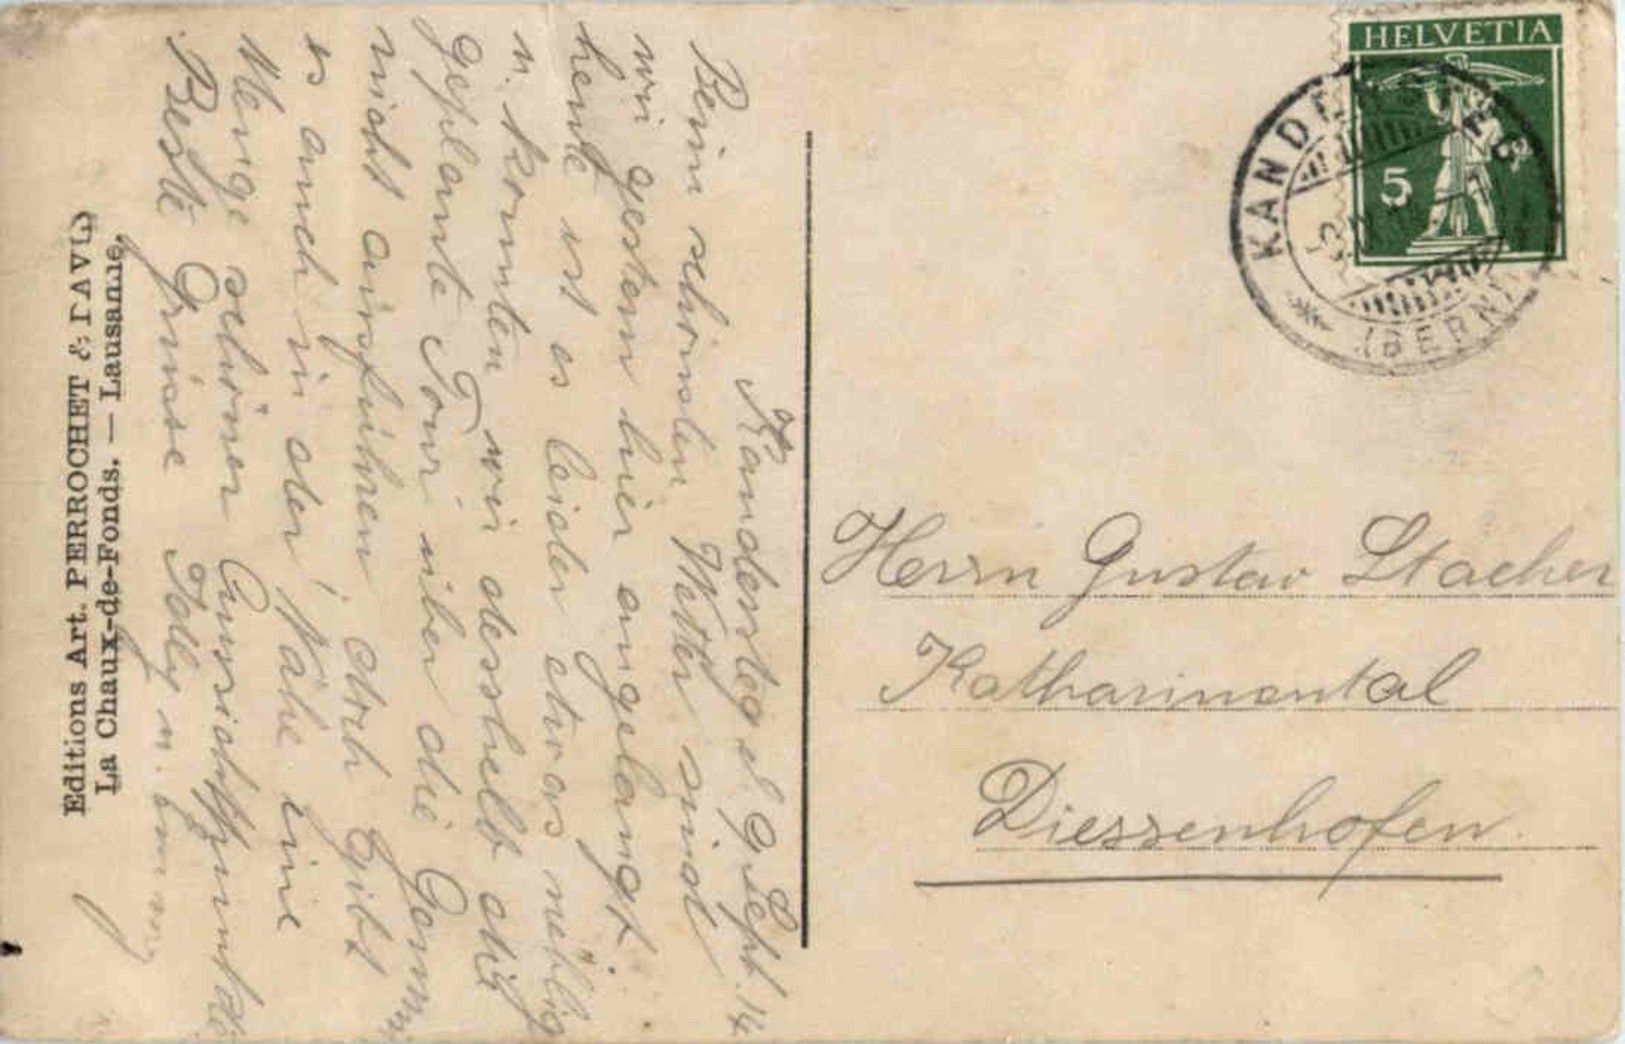 Kandersteg d. 9 Sept. 14
Beim schönsten Wetter sind
wir gestern hier angelangt.
heute ist es leider etwas neblig
u. konnten wir desshalb die
geplante Tour über die Gemmi
nicht ausführen, doch gibt
es auch in der Nähe eine
Menge schöner Aussichtspunkte
Beste Grüsse
Editions Art. PERROCHET & DAVID
La Chaux-de-Fonds. — Lausanne.
HELVETIA
5
KANDERSTEG
(BERN)
Herrn Gustav Stacher
Katharinental
Diessenhofen